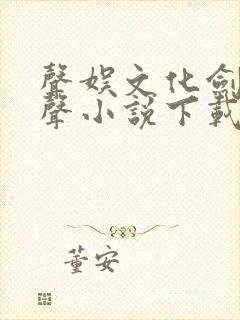 聲娛文化劍
聲小說下載
董安